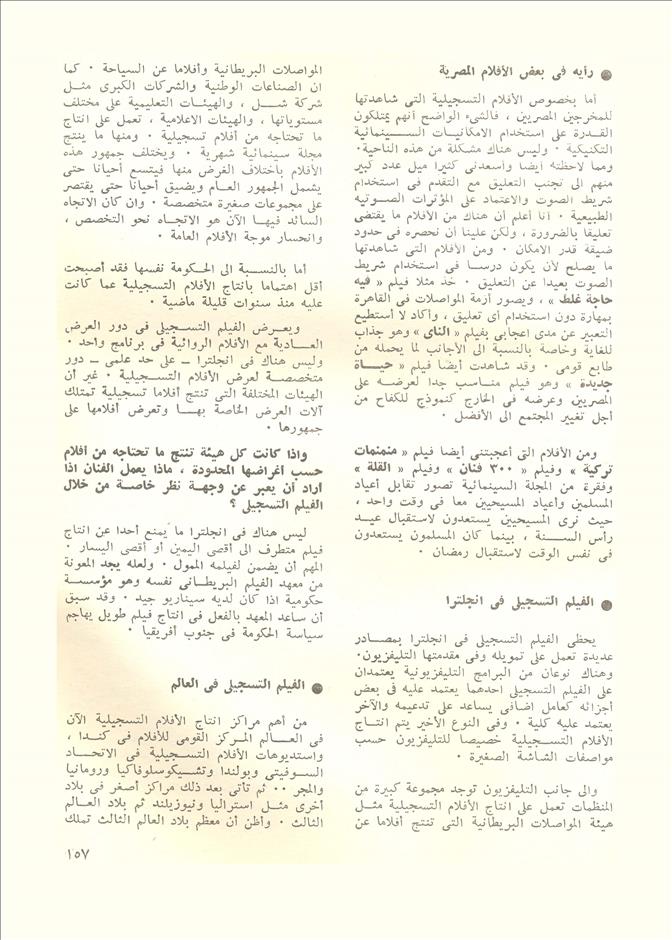 ● رأيه فى بعض الأفلام المصرية
أما بخصوص الأفلام التسجيلية التى شاهدتها
للمخرجين المصريين ، فالشىء الواضح أنهم يمتلكون
القدرة على استخدام الامكانيات السينمائية
التكنيكية ٠ وليس هناك مشكلة من هذه الناحية٠
ومما لاحظته أيضا وأسعدنى كثيرا ميل عدد كبير
منهم الى تجنب التعليق مع التقدم فى استخدام
شريط الصوت والاعتماد على المؤثرات الصوتيه
الطبيعية ٠ أنا أعلم أن هناك من الأفلام ما يقتضى
تعليقا بالضرورة ، ولكن علينا أن نحصره فى حدود
ضيقة قدر الامكان ٠ ومن الأفلام التى شاهدتها
ما يصلح لأن يكون درسا فى استخدام شريط
الصوت بعيدا عن التعليق ٠ خذ مثلا فيلم « فيه
حاجة غلط » ، ويصور أزمة المواصلات فى القاهرة
بمهارة دون استخدام أى تعليق ، وأكاد لا أستطيع
التعبير عن مدى اعجابى بفيلم « الناى » وهو جذاب
للغاية وخاصة بالنسبة الى الأجانب لما يحمله من
طابع قومى ٠ وقد شاهدت أيضا فيلم « حياة
جديدة » وهو فيلم مناسب جدا لعرضه على
المصريين وعرضه فى الخارج كنموذج للكفاح من
أجل تغيير المجتمع الى الأفضل ٠
ومن الأفلام التى أعجبتنى أيضا فيلم « منمنمات
تركية » وفيلم « ٣٠٠ فنان » وفيلم « القلة »
وفقرة من المجلة السينمائية تصور تقابل أعياد
المسلمين وأعياد المسيحيين معا فى وقت واحد ،
حيث نرى المسيحيين يستعدون لاستقبال عيد
رأس السنة ، بينما كان المسلمون يستعدون
فى نفس الوقت لاستقبال رمضان ٠
● الفيلم التسجيلى فى انجلترا
يحظى الفيلم التسجيلى فى انجلترا بمصادر
عديدة تعمل على تمويله وفى مقدمتها التليفزيون٠
وهناك نوعان من البرامج التليفزيونية يعتمدان
على الفيلم التسجيلى احدهما يعتمد عليه فى بعض
أجزائه كعامل اضافى يساعد على تدعيمه والآخر
يعتمد عليه كلية ٠ وفى النوع الأخير يتم انتاج
الأفلام التسجيلية خصيصا للتليفزيون حسب
مواصفات الشاشة الصغيرة ٠
والى جانب التليفزيون توجد مجموعة كبيرة من
المنظمات تعمل على انتاج الأفلام التسجيلية مثل
هيئة المواصلات البريطانية التى تنتج أفلاما عن
المواصلات البريطانية وأفلاما عن السياحة ٠ كما
ان الصناعات الوطنية والشركات الكبرى مثل
شركة شل ، والهيئات التعليمية على مختلف
مستوياتها ، والهيئات الاعلامية ، تعمل على انتاج
ما تحتاجه من أفلام تسجيلية ٠ ومنها ما ينتج
مجلة سينمائية شهرية ٠ ويختلف جمهور هذه
الأفلام بأختلاف الغرض منها فيتسع أحيانا حتى
يشمل الجمهور العام ويضيق أحيانا حتى يقتصر
على مجموعات صغيرة متخصصة ٠ وان كان الاتجاه
السائد فيها الآن هو الاتجاه نحو التخصص ،
وانحسار موجة الأفلام العامة ٠
أما بالنسبة الى الحكومة نفسها فقد أصبحت
أقل اهتماما بانتاج الأفلام التسجيلية عما كانت
عليه منذ سنوات قليلة ماضية ٠
ويعرض الفيلم التسجيلى فى دور العرض
العادية مع الأفلام الروائية فى برنامج واحد ٠
وليس هناك فى انجلترا ــ على حد علمى ــ دور
متخصصة لعرض الأفلام التسجيلية ٠ غير أن
الهيئات المختلفة التى تنتج أفلاما تسجيلية تمتلك
آلات العرض الخاصة بها وتعرض أفلامها على
جمهورها ٠
واذا كانت كل هيئة تنتج ما تحتاجه من أفلام
حسب أغراضها المحدودة ، ماذا يعمل الفنان اذا
أراد أن يعبر عن وجهة نظر خاصة من خلال
الفيلم التسجيلى ؟
ليس هناك فى انجلترا ما يمنع أحدا عن انتاج
فيلم متطرف الى أقصى اليمين أو أقصى اليسار ٠
المهم أن يضمن لفيلمه الممول ٠ ولعله يجد المعونة
من معهد الفيلم البريطانى نفسه وهو مؤسسة
حكومية اذا كان لديه سيناريو جيد ٠ وقد سبق
أن ساعد المعهد بالفعل فى انتاج فيلم طويل يهاجم
سياسة الحكومة فى جنوب أفريقيا ٠
● الفيلم التسجيلى فى العالم
من أهم مراكز انتاج الأفلام التسجيلية الآن
فى العالم المركز القومى للأفلام فى كندا ،
واستديوهات الأفلام التسجيلية فى الاتحاد
السوفيتى وبولندا وتشيكوسلوفاكيا ورومانيا
والمجر ٠٠ ثم تأتى بعد ذلك مراكز أصغر فى بلاد
أخرى مثل استراليا ونيوزيلند ثم بلاد العالم
الثالث ٠ وأظن أن معظم بلاد العالم الثالث تملك
١٥٧